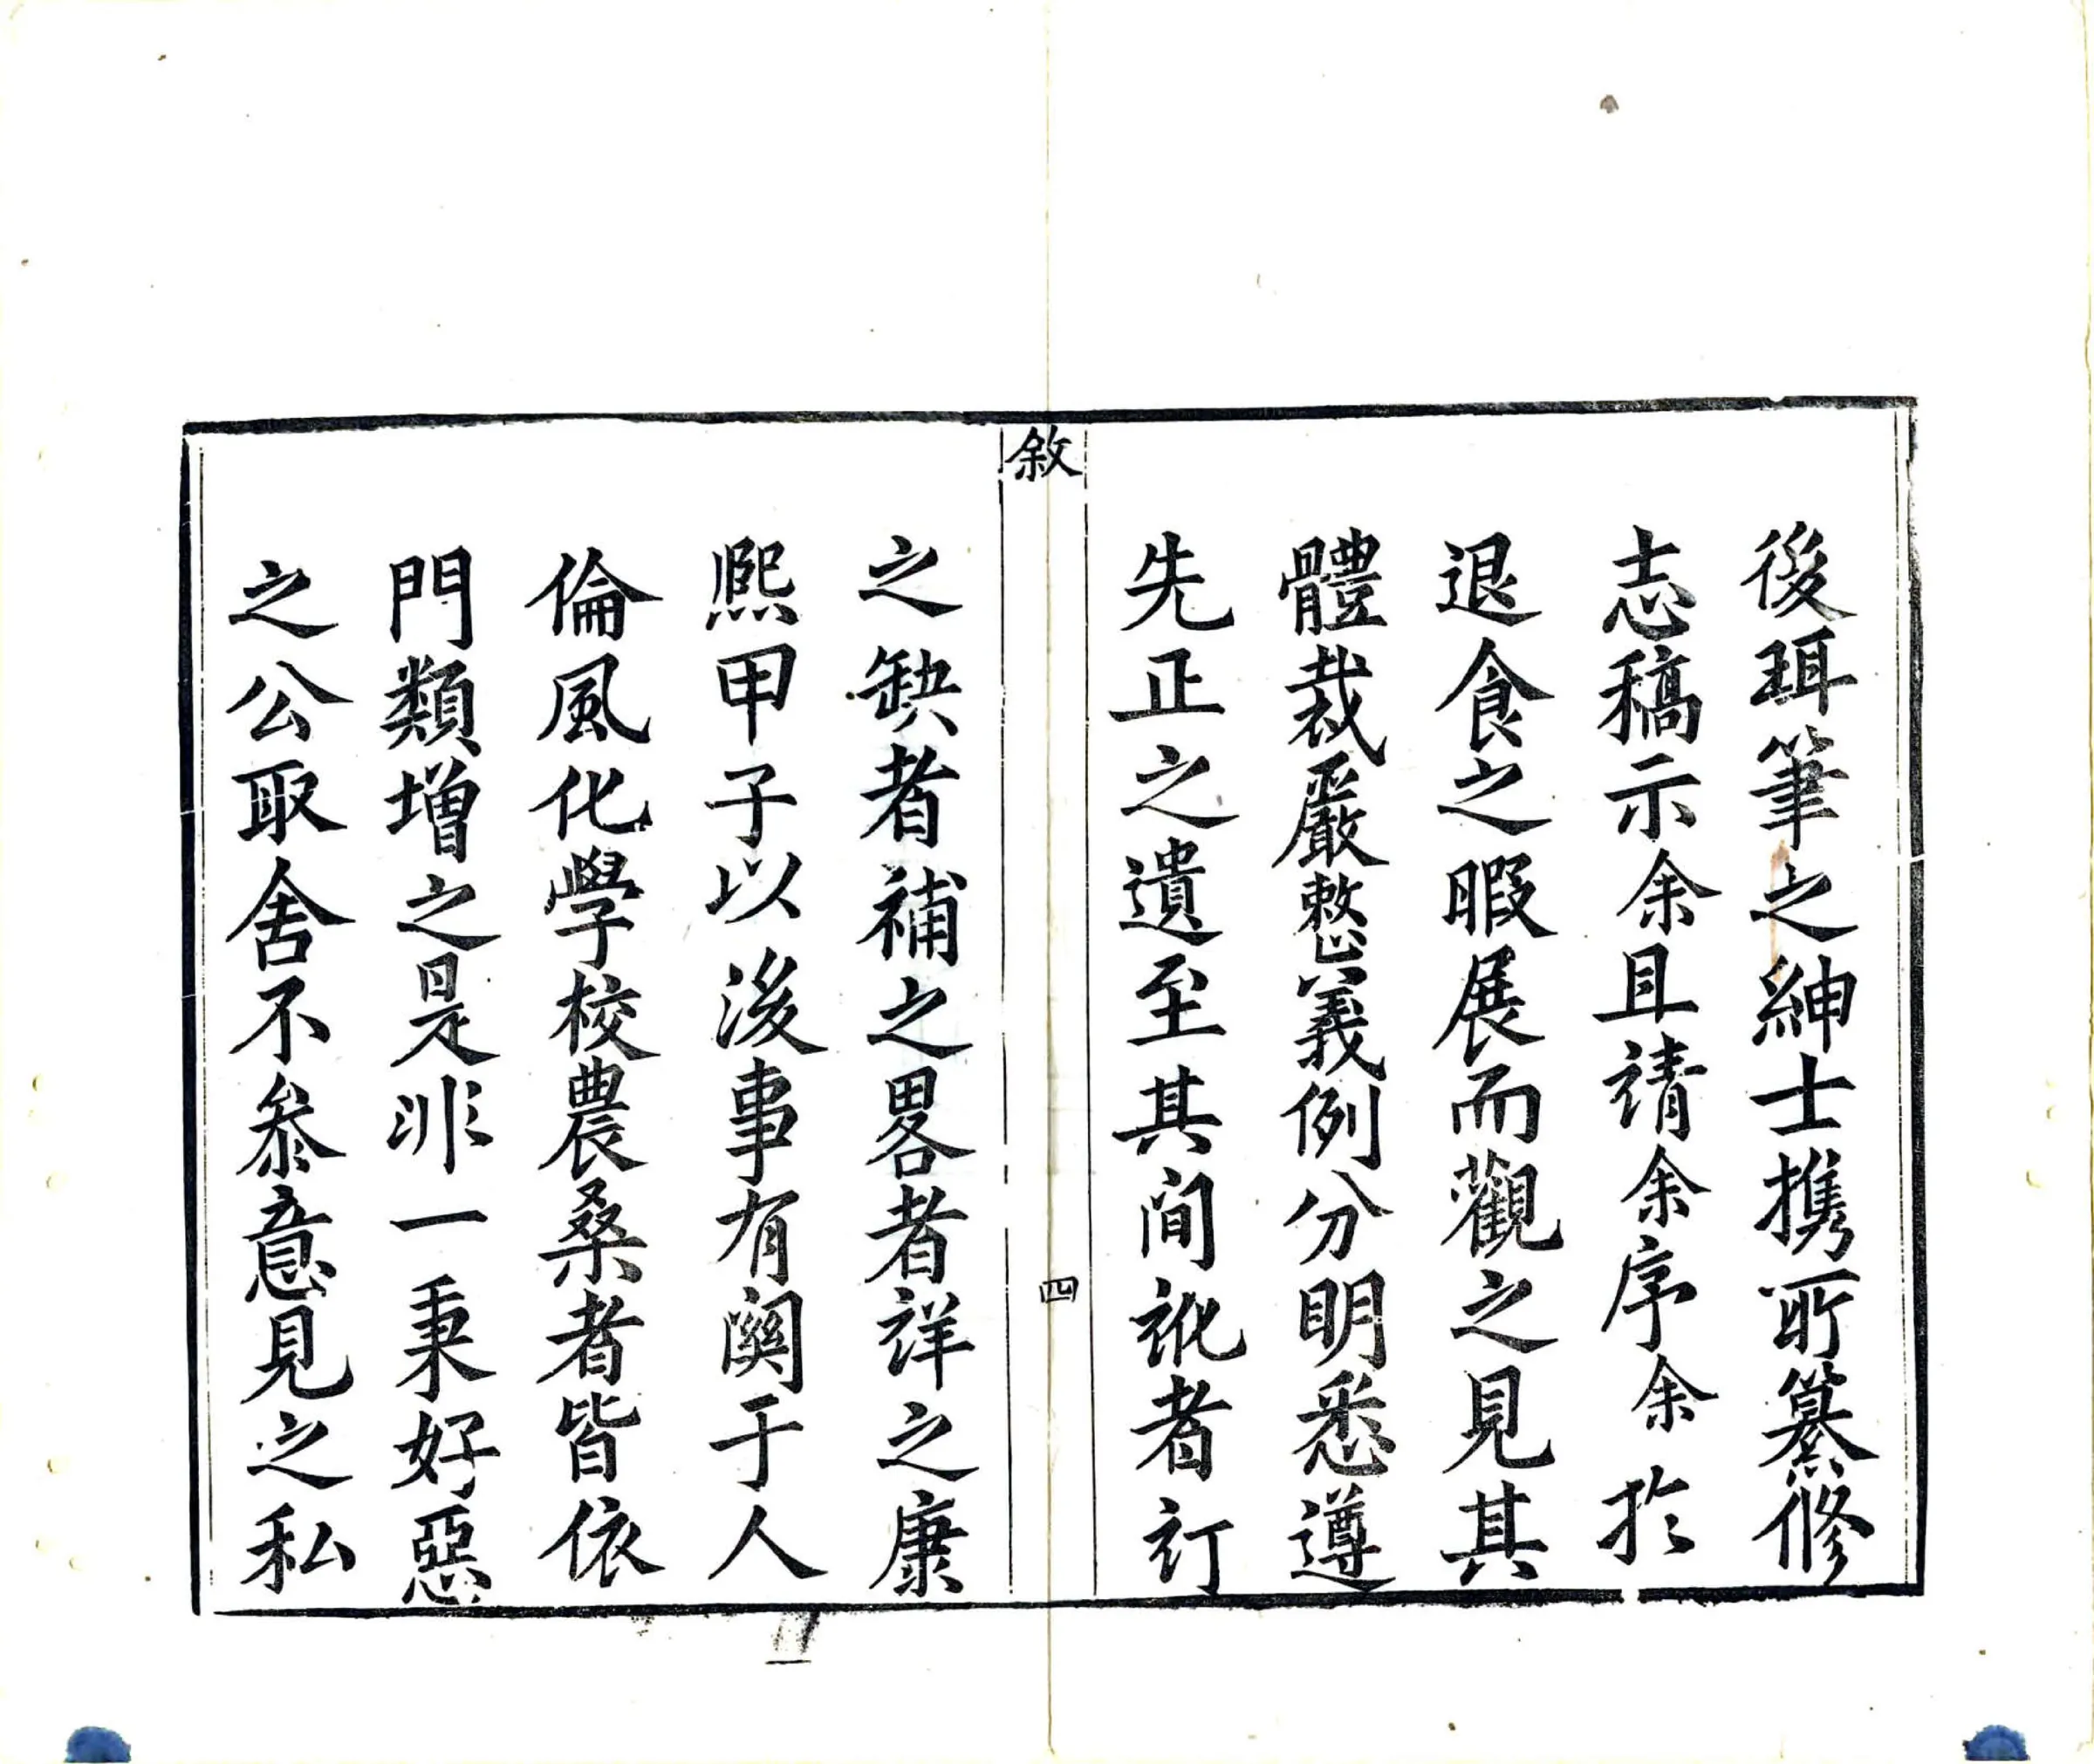 後珥筆之紳士携所纂修
志稿示余且請余序余於
退食之暇展而觀之見其
體裁嚴整義例分明悉遵
先正之遺至其間訛者訂
敘
四
之缺者補之畧者祥之康
熙甲子以後事有関于人
倫風化學校農桑者皆依
門類增之是非一秉好惡
之公取舍不叅意見之私